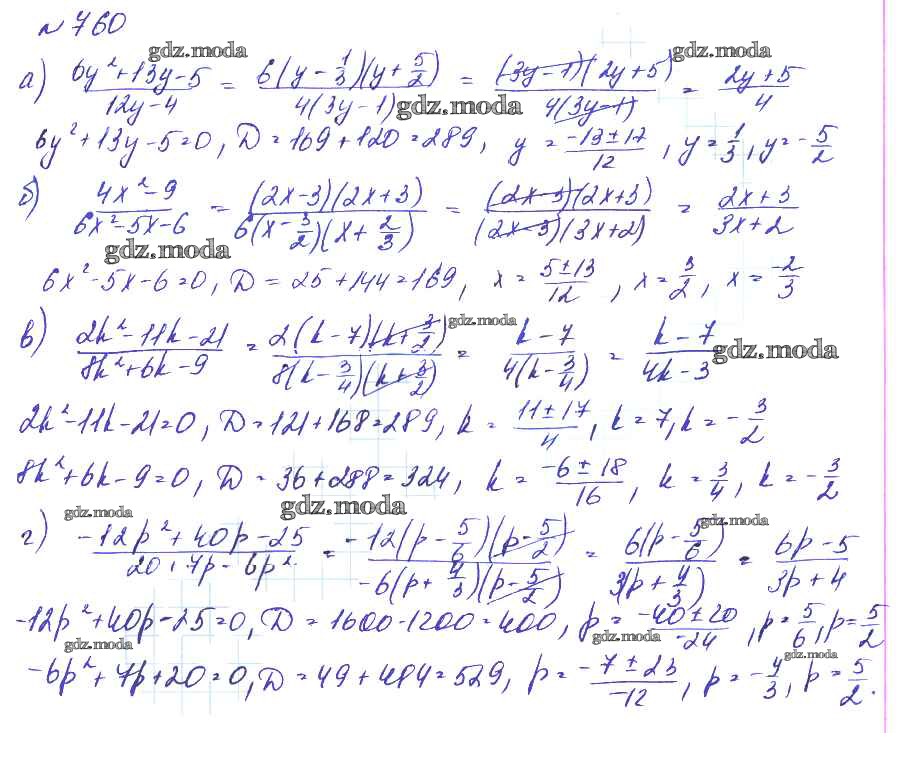 № 760
gdz.moda gdz.moda
а) (6y²+13y-5)/(12y-4) = 6(y-1/3)(y+5/2)/(4(3y-1)) = (3y-1)(2y+5)/(4(3y-1)) = (2y+5)/4
gdz.moda
6y²+13y-5=0, D=169+120=289, y=(-13±17)/12, y=1/3, y=-5/2
б) (4x²-9)/(6x²-5x-6) = (2x-3)(2x+3)/(6(x-3/2)(x+2/3)) = (2x-3)(2x+3)/((2x-3)(3x+2)) = (2x+3)/(3x+2)
gdz.moda
6x²-5x-6=0, D=25+144=169, x=(5±13)/12, x=3/2, x=-2/3
gdz.moda
в) (2k²-11k-21)/(8k²+6k-9) = 2(k-7)(k+3/2)/(8(k-3/4)(k+3/2)) = (k-7)/(4(k-3/4)) = (k-7)/(4k-3)
gdz.moda
2k²-11k-21=0, D=121+168=289, k=(11±17)/4, k=7, k=-3/2
8k²+6k-9=0, D=36+288=324, k=(-6±18)/16, k=3/4, k=-3/2
gdz.moda gdz.moda
г) (-12p²+40p-25)/(20+7p-6p²) = -12(p-5/6)(p-5/2)/(-6(p+4/3)(p-5/2)) = 6(p-5/6)/(3(p+4/3)) = (6p-5)/(3p+4)
-12p²+40p-25=0, D=1600-1200=400, p=(-40±20)/-24, p=5/6, p=5/2
gdz.moda gdz.moda gdz.moda
-6p²+7p+20=0, D=49+484=529, p=(-7±23)/-12, p=-4/3, p=5/2.